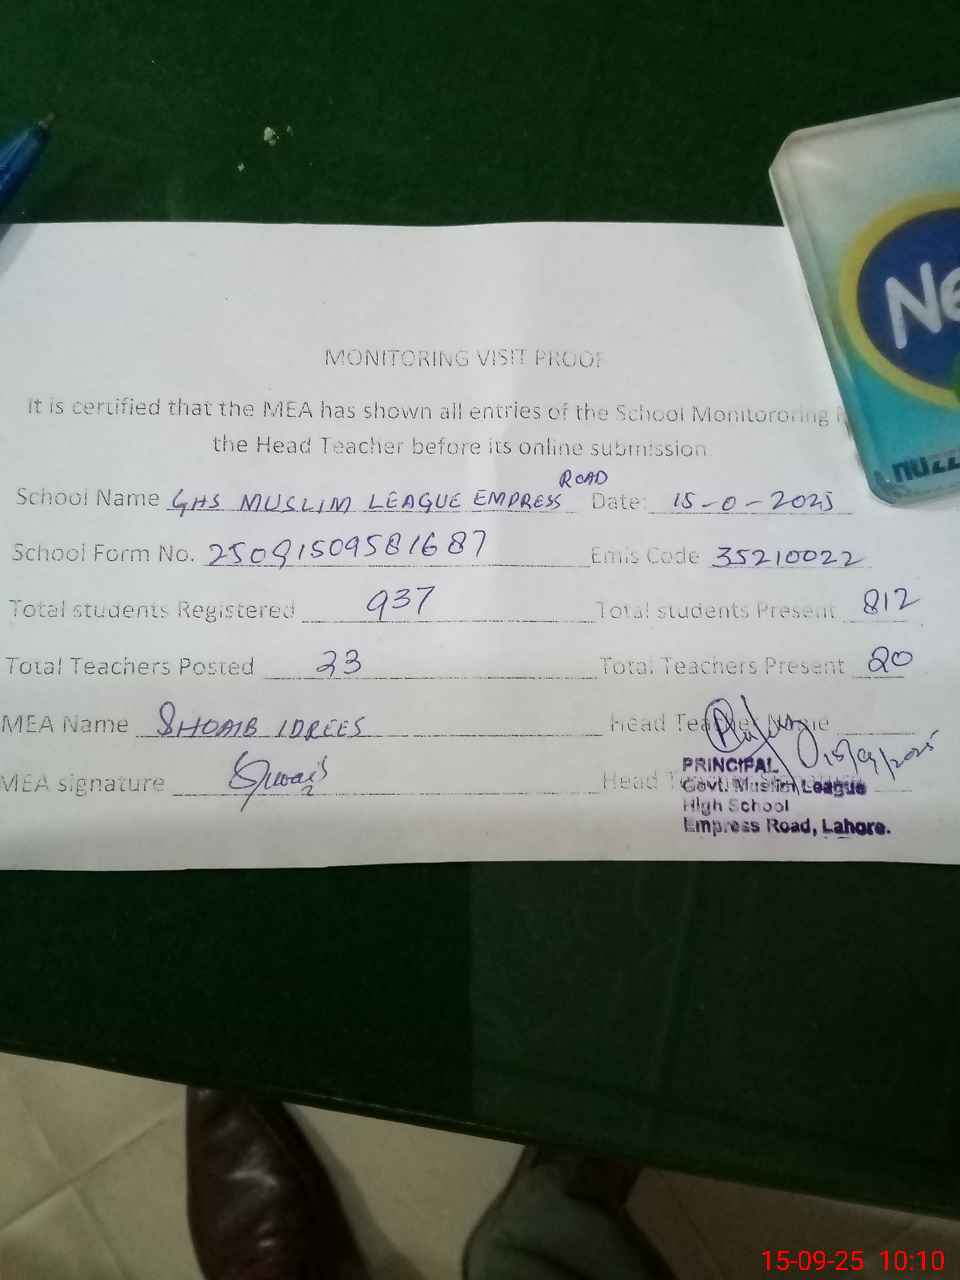 MONITORING VISIT PROOF
It is certified that the MEA has shown all entries of the School Monitororing
the Head Teacher before its online submission.
School Name GHS MUSLIM LEAGUE EMPRESS ROAD Date: 15-0-2025
School Form No. 25091509581687 Emis Code 35210022
Total students Registered 937 Total students Present 812
Total Teachers Posted 23 Total Teachers Present 20
MEA Name SHOAIB IDREES Head Teacher Name
15/09/2025
MEA signature Head
PRINCIPAL
Govt. Muslim League
High School
Empress Road, Lahore.
Ne
nuzz
15-09-25 10:10